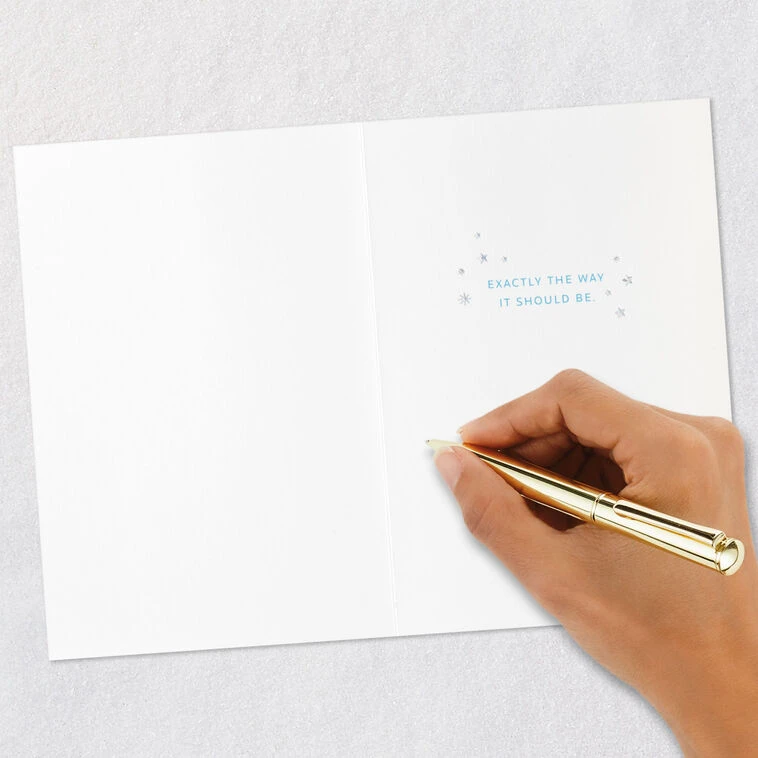 EXACTLY THE WAY
IT SHOULD BE.